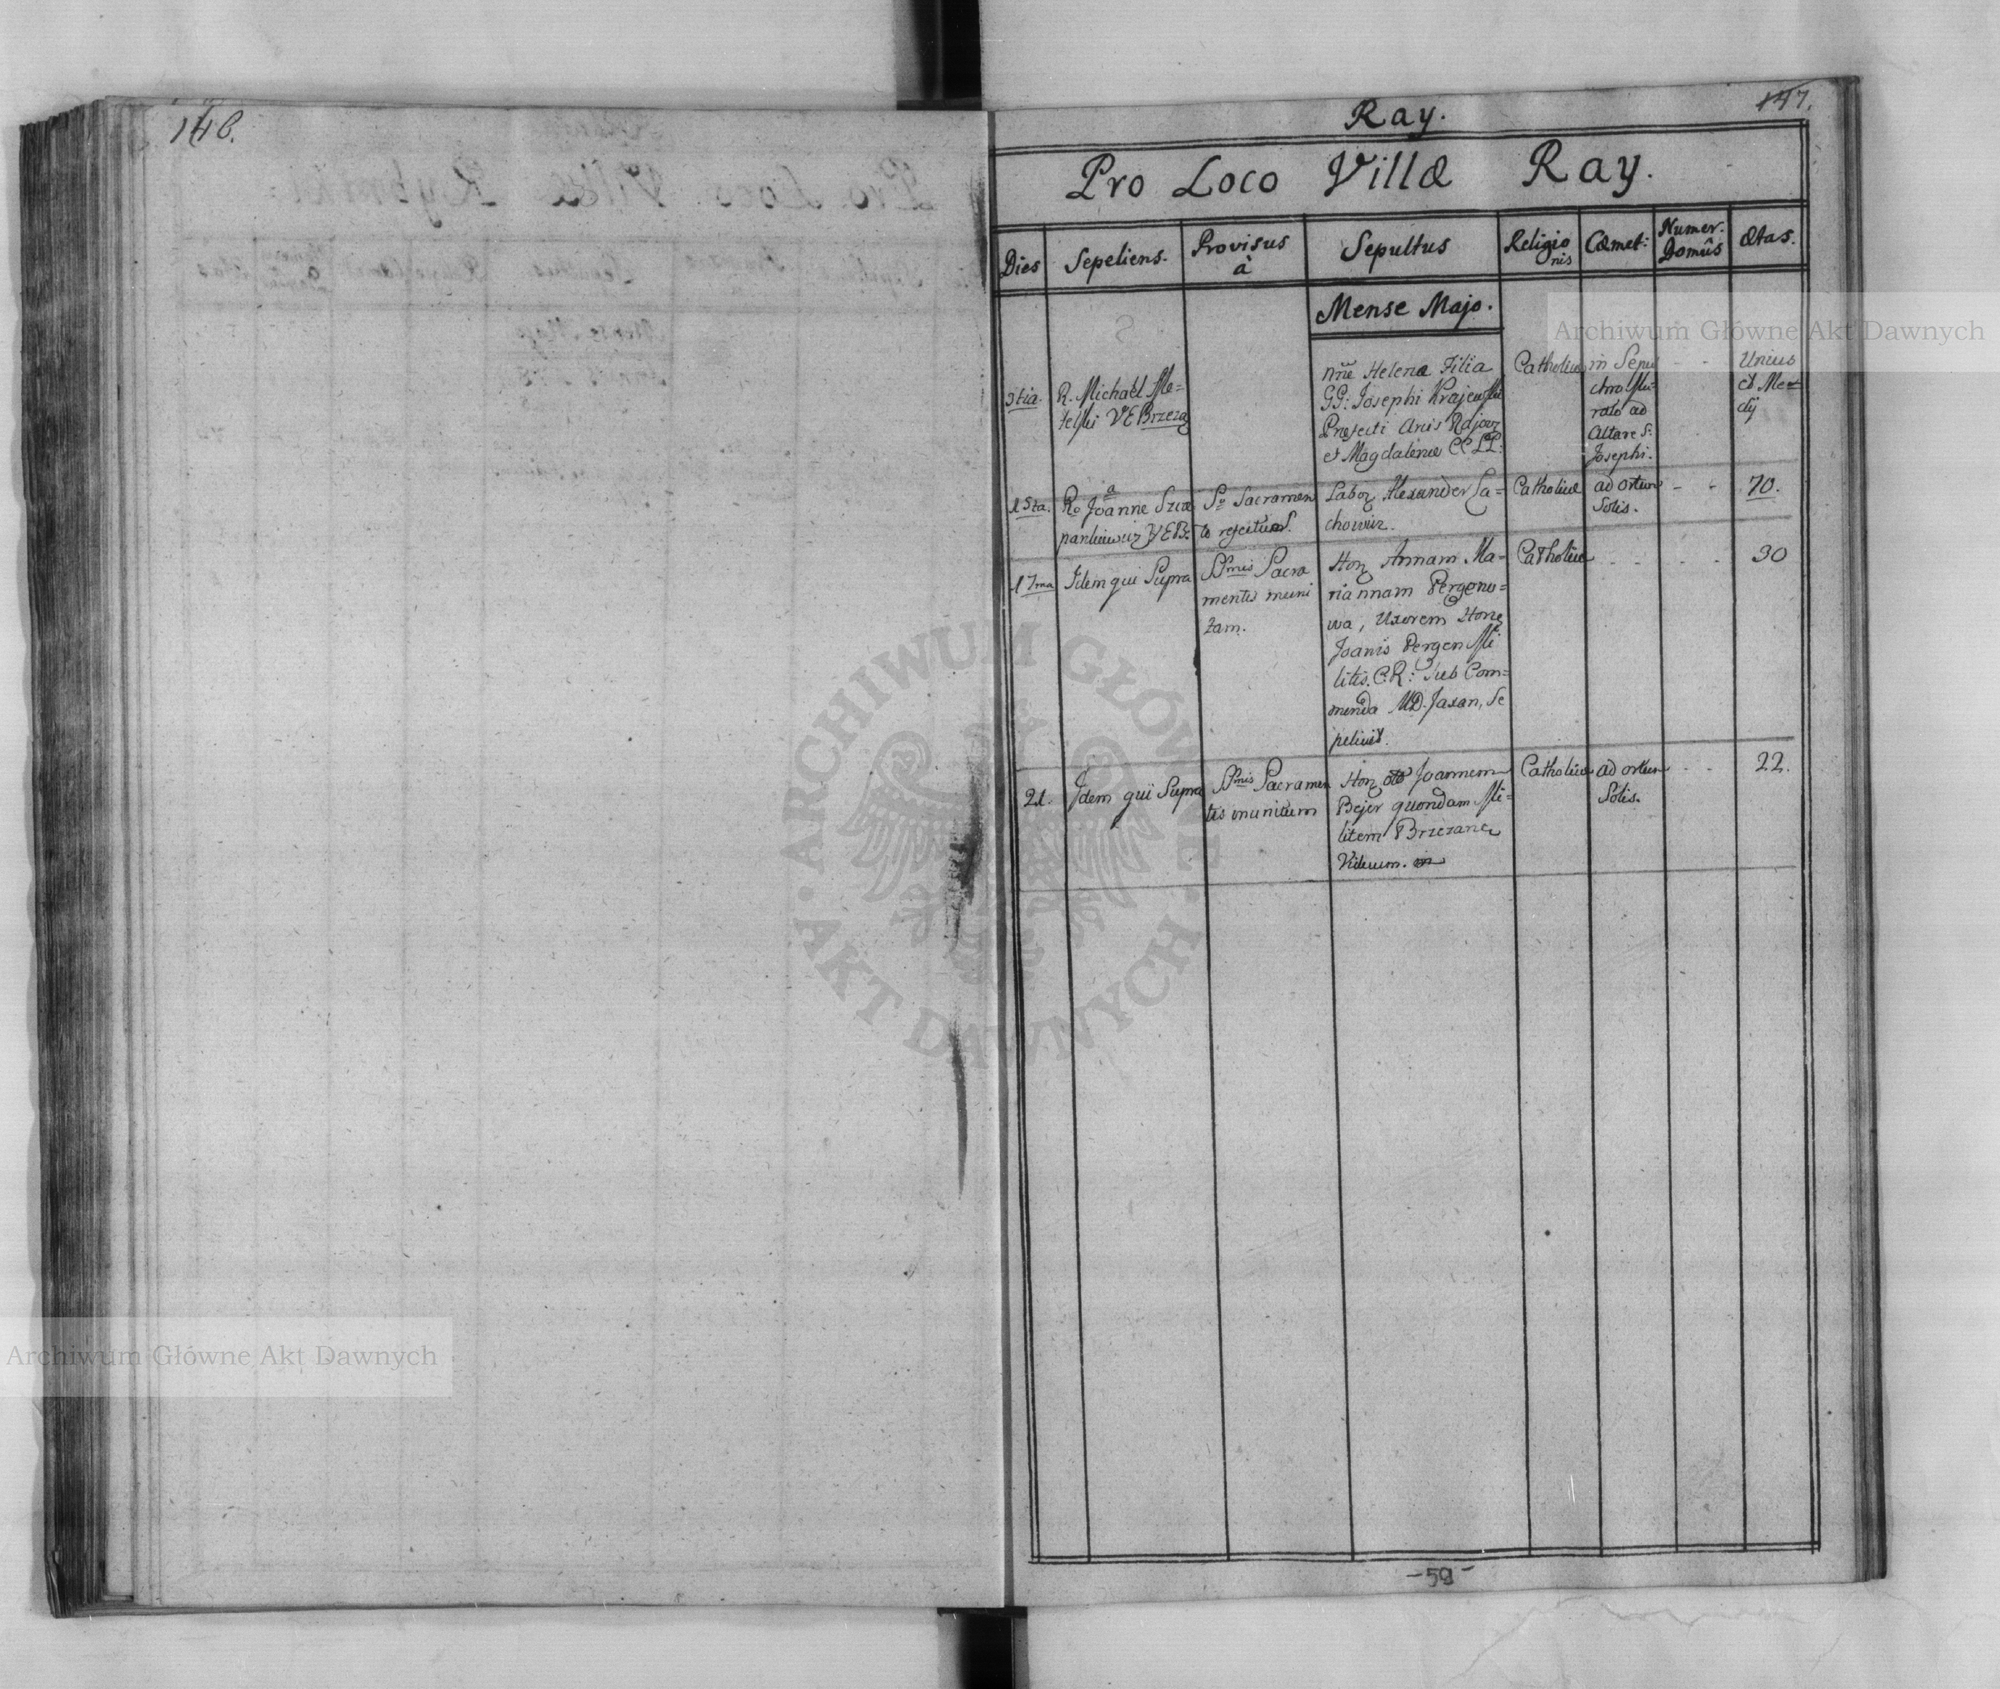 146.
147.
Ray.
Pro Loco Villæ Ray.
Dies
Sepeliens.
Provisus à
Sepultus
Religionis
Cæmet:
Numer. Domûs
Ætas.
Mense Majo.
3tia.
R. Michaël Me=
telski VEBrzeza
Helenæ Filia
GG: Josephi Krajewski
Præfecti
et Magdalenæ CC LL.
Catholicæ
in Sepul
chro Mu=
rato ad
Altare S:
Josephi.
- -
Unius
et Me=
dij
15ta.
Ro Joanne Szcze
pankiewicz VEB:
So Sacramen
to refectus.
Labor Alexander La=
chowicz.
Catholicæ
ad ortum
Solis.
- -
70.
17ma
Idem qui Supra
SSmis Sacra
mentis muni
tam.
Hon Annam Ma=
riannam Pergeno=
wa, Uxorem Hon
Joanis Pergen Mi
litis. C.R: sub Com=
menda MD. Jaxan, Se
pelivit.
Catholicæ
- - - -
30
21.
Idem qui Supra
SSmis Sacramen
tis munitum
Hon Joannem
Bejer quondam Mi=
litem Brzezane
Viduum.
Catholicæ
ad ortum
Solis.
- -
22.
- 59 -
Archiwum Główne Akt Dawnych
Archiwum Główne Akt Dawnych
ARCHIWUM GŁÓWNE · AKT DAWNYCH ·